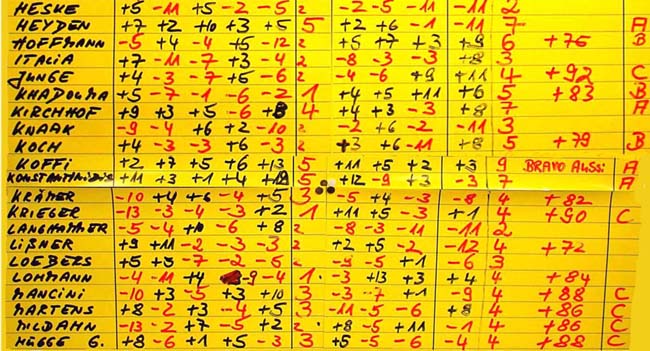 HESKE +5 -11 +5 -2 -5 2 -2 -5 -11 -11 2
HEYDEN +7 +2 +10 +3 +5 5 +2 +6 -1 -11 7 A
HOFFMANN -5 +4 -4 +5 -12 2 +5 +7 +3 +9 6 +76 B
ITALIA +7 -11 -7 +3 -4 2 -8 -3 -3 +8 3
JUNGE +4 -3 -7 +5 -6 2 -4 -6 +9 +11 4 +92 C
KHADOUMA +5 -7 -1 -6 -2 1 +4 +5 +11 +6 5 +83 B
KIRCHHOF +9 +3 +5 -6 +8 4 +4 +3 -3 +8 7 A
KNAAK -9 -4 +6 +2 -10 2 -2 +6 -2 -11 3
KOCH +4 -3 -3 +6 -3 2 +3 +6 -11 +8 5 +79 B
KOFFI +2 +7 +5 +6 +13 5 +11 +5 +2 +3 9 BRAVO AUSSI A
+11 +3 +1 +4 +19 5 +12 -9 +3 -3 7 A
KRÄMER -10 +4 +6 -4 +5 3 -5 +4 -3 -8 4 +82
KRIEGER -13 -3 -4 -3 +2 1 +11 +5 -3 +1 4 +90 C
LANGHAMMER -5 -4 +10 -6 +8 2 -8 -3 -11 -11 2
LIßNER +9 +11 -2 -3 -3 2 +2 +5 -2 -12 4 +72
LOEBERS +5 +5 -7 -2 -6 2 -9 -5 +1 -6 3
LOHMANN -4 -11 +4 -9 -4 1 -3 +13 +3 +4 4 +84
MANCINI -10 +3 -5 +3 +10 3 -3 -7 +1 -9 4 +88 C
MARTENS +8 -2 +3 -4 +5 3 -11 -5 -6 +8 4 +86 C
MILDAHN -13 -2 +7 -5 +2 2 +8 -5 +11 -1 4 +86 C
HEGGE G. +8 -6 +1 +5 -3 3 +5 -5 -6 -4 4 +88 C